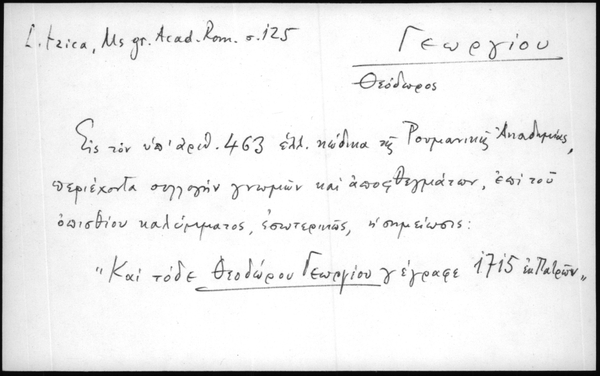 L. Itzica, Ms gr. Acad. Rom. σ. 125
Γεωργίου
Θεόδωρος
Εἰς τὸν ὑπ' ἀριθ. 463 ἑλλ. κώδικα τῆς Ρουμανικῆς Ἀκαδημίας,
περιέχοντα συλλογὴν γνωμῶν καὶ ἀποφθεγμάτων, ἐπὶ τοῦ
ὀπισθίου καλύμματος, ἐσωτερικῶς, ἡ σημείωσις:
"Καὶ τόδε Θεοδώρου Γεωργίου γέγραφε 1715 ἐκ Πατρῶν"